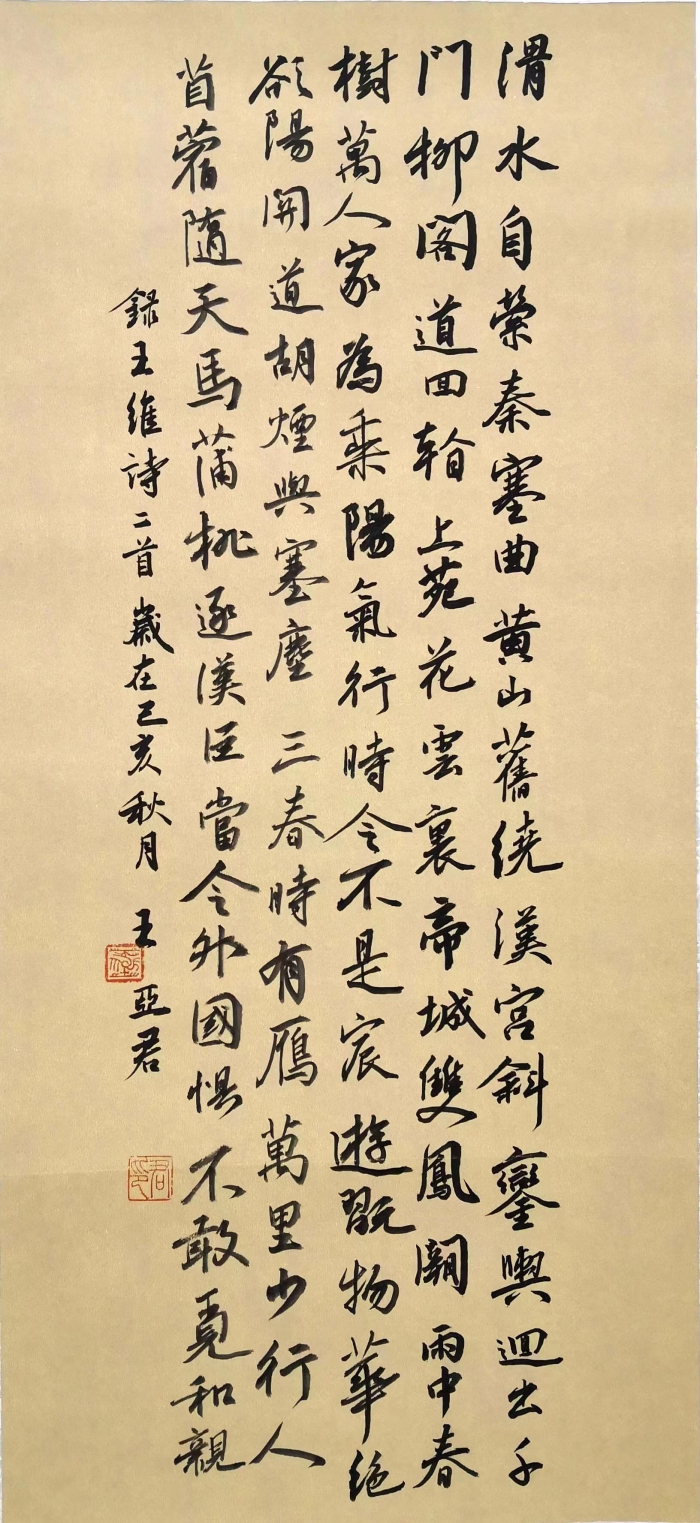 渭水自縈秦塞曲黄山舊繞漢宮斜鑾輿迴出千
門柳閣道回看上苑花雲裏帝城雙鳳闕雨中春
樹萬人家為乘陽氣行時令不是宸遊翫物華絶
欲陽開道胡煙與塞塵三春時有雁萬里少行人
苜蓿隨天馬蒲桃逐漢臣當令外國懼不敢覓和親
録王維詩二首歲在己亥秋月 王亞君